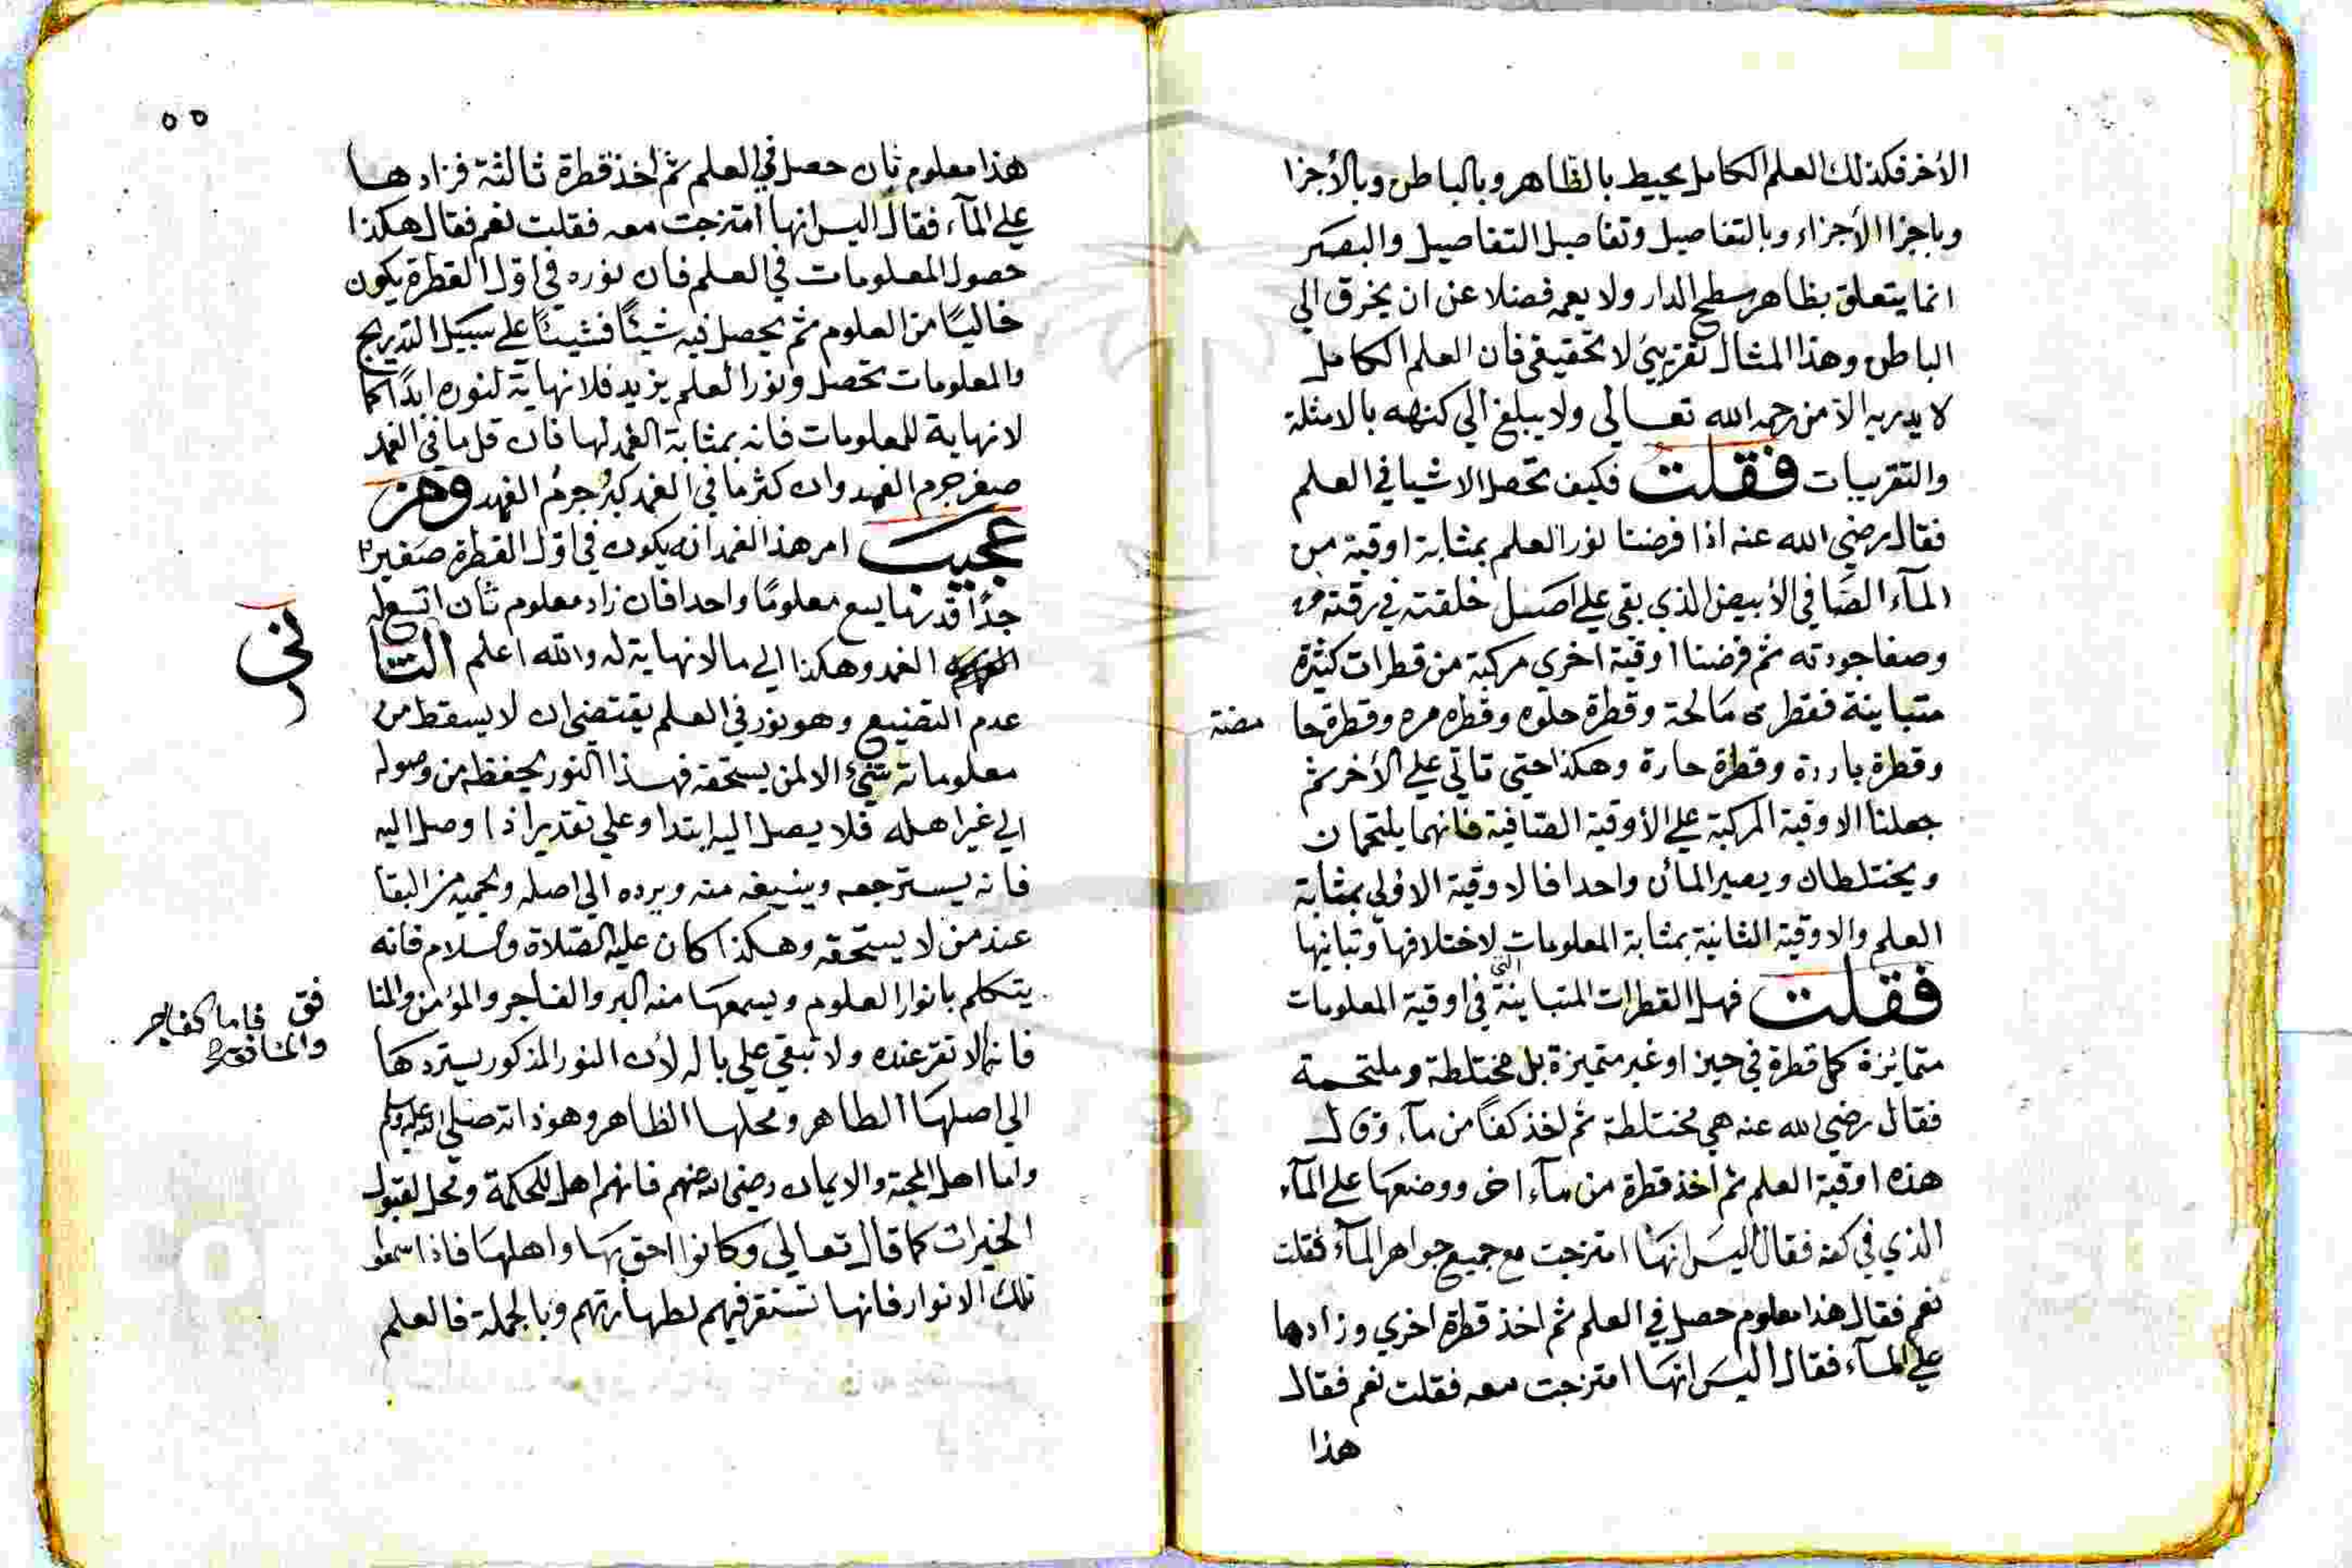 الأخر فكذلك العلم الكامل يحيط بالظاهر وبالباطن وبالأجزا
وباجزا الأجزاء وبالتفاصيل وتفاصيل التفاصيل والبصر
انما يتعلق بظاهر سطح الدار ولا يعمه فضلا عن ان يخرق الي
الباطن وهذا المثال تقريبيٌ لا تحقيقي فان العلم الكامل
لا يدريه الا من رحمه الله تعالي ولا يبلغ الي كنهه بالامثلة
والتقريبات فقلت فكيف تحصل الاشيا في العلم
فقال رضي الله عنه اذا فرضنا نور العلم بمثابة اوقية من
المآء الصَافي الأبيض الذي بقي علي اصل خلقته في رقته
وصفا جودته ثم فرضنا اوقية اخري مركبة من قطرات كثيرة
متباينة فقطرة مالحة وقطرة حلوه وقطره مره وقطرة حا مضة
وقطرة باردة وقطرة حارة وهكذا حتي تاتي علي الأخر ثم
جعلنا الاوقية المركبة علي الأوقية الصافية فانهما يلتحمان
ويختلطان ويصير المأن واحدا فالاوقية الاولي بمثابة
العلم والاوقية الثانية بمثابة المعلومات لاختلافها وتباينها
فقلت فهل القطرات المتباينة التي في اوقية المعلومات
متمايزة كل قطرة في حيز او غير متميزة بل مختلطة وملتحمة
فقال رضي الله عنه هي مختلطة ثم اخذ كفاً من مآء وقال
هذه اوقية العلم ثم اخذ قطرة من مآء اخر ووضعهَا علي المآء
الذي في كفه فقال اليسَ انهَا امتزجت مع جميع جواهر المآء فقلت
نعم فقال هذا معلوم حصل في العلم ثم اخذ قطرة اخري وزادها
علي المآء فقال اليسَ انهَا امتزجت معه فقلت نعم فقال
هذا
٥٥
هذا معلوم ثان حصل في العلم ثم اخذ قطرة ثالثة فزادها
علي المآء فقال اليس انها امتزجت معه فقلت نعم فقال هكذا
حصول المعلومات في العلم فان نوره في اول الفطرة يكون
خاليًا من العلوم ثم يحصل فيه شيئًا فشيئًا علي سبيل التدريج
والمعلومات تحصل ونور العلم يزيد فلا نهاية لنوره ابدًا كما
لا نهاية للمعلومات فانه بمثابة الغمد لها فان قل ما في الغمد
صغر جرم الغمد وان كثر ما في الغمد كبُر جرمُ الغمد ومن
عجيب امر هذا الغمد انه يكون في اول الفطرة صَغيرا
جدًا قدر ما يسع معلومًا واحدا فان زاد معلوم ثان اتسع له
الغمد وهكذا الي ما لا نهاية له والله اعلم الثا
ني
عدم التضييع وهو نور في العلم يقتضي ان لا يسقط من
معلوماته شيئ الا لمن يستحقه فهذا النور يحفظه من وصوله
الي غير اهله فلا يصل اليه ابتدا وعلي تقدير اذا وصل اليه
فانه يسترجعه وينسيه منه ويرده الي اصله ويحميه من البقا
عند من لا يستحقه وهكذا كان عليه الصّلاة والسلام فانه
يتكلم بانوار العلوم ويسمعهَا منه البر والفاجر والمؤمن والمنا
فق فاما الفاجر
والمنافق
فانها لا تقر عنده ولا تبقي علي باله لأن النور المذكور يستردهَا
الي اصلهَا الطاهر ومحلها الظاهر وهو ذاته صلي الله عليه وسلم
واما اهل المحبة والايمان رضي الله عنهم فانهم اهل للحكمة ومحل لقبول
الخيرات كما قال تعالي وكانوا احق بهَا واهلهَا فاذا سمعوا
تلك الانوار فانها تستقر فيهم لطهارتهم وبالجملة فالعلم